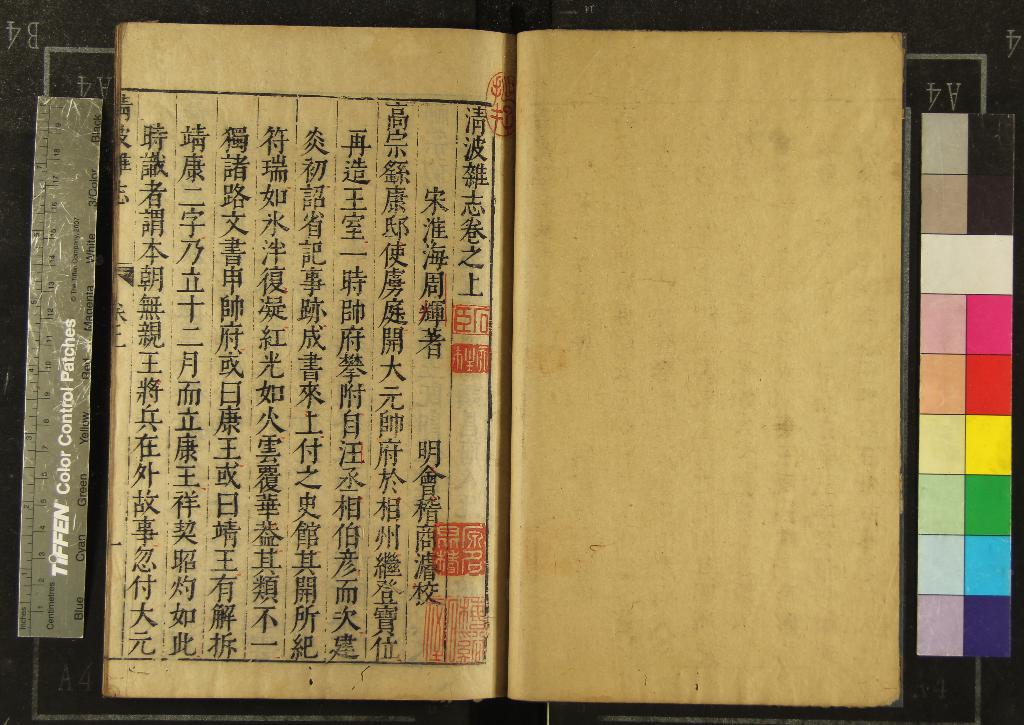 清波雜志卷之上
宋淮海周輝著 明會稽商濬校
高宗繇康邸使虜庭開大元帥府於相州繼登寶位
再造王室一時帥府攀附自汪丞相伯彦而次建
炎初詔省記事跡成書來上付之史館其開所紀
符瑞如氷泮復凝紅光如火雲覆華葢其類不一
獨諸路文書申帥府或曰康王或曰靖王有解拆
靖康二字乃立十二月而立康王祥契昭灼如此
時識者謂本朝無親王將兵在外故事忽付大元
清波雜志
卷上
一
TIFFEN Color Control Patches
© The Tiffen Company, 2007
Blue
Cyan
Green
Yellow
Red
Magenta
White
3/Color
Black
Inches
Centimetres
B4
A4
A4
A4